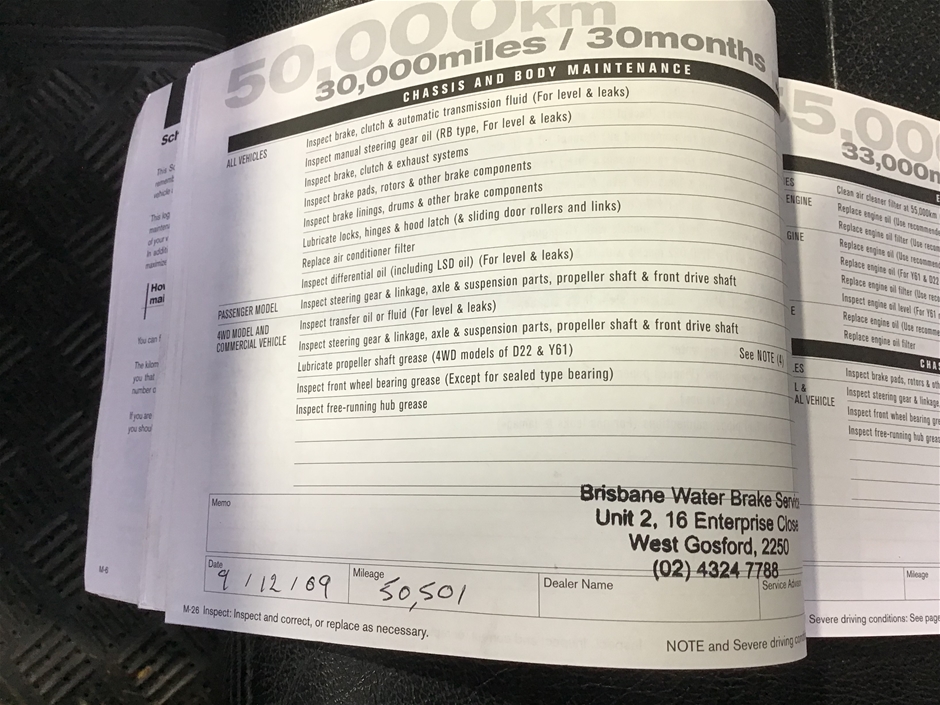 50,000km
30,000miles / 30months
CHASSIS AND BODY MAINTENANCE
ALL VEHICLES
Inspect brake, clutch & automatic transmission fluid (For level & leaks)
Inspect manual steering gear oil (RB type, For level & leaks)
Inspect brake, clutch & exhaust systems
Inspect brake pads, rotors & other brake components
Inspect brake linings, drums & other brake components
Lubricate locks, hinges & hood latch (& sliding door rollers and links)
Replace air conditioner filter
Inspect differential oil (including LSD oil) (For level & leaks)
PASSENGER MODEL
Inspect steering gear & linkage, axle & suspension parts, propeller shaft & front drive shaft
4WD MODEL AND
COMMERCIAL VEHICLE
Inspect transfer oil or fluid (For level & leaks)
Inspect steering gear & linkage, axle & suspension parts, propeller shaft & front drive shaft
Lubricate propeller shaft grease (4WD models of D22 & Y61) See NOTE (4)
Inspect front wheel bearing grease (Except for sealed type bearing)
Inspect free-running hub grease
Memo
Brisbane Water Brake Servi
Unit 2, 16 Enterprise Close
West Gosford, 2250
(02) 4324 7788
Date
9/12/09
Mileage
50,501
Dealer Name
Service Advi
M-26 Inspect: Inspect and correct, or replace as necessary.
NOTE and Severe driving con
M-6
5,000
33,000m
ENGINE
Clean air cleaner filter at 55,000km
Replace engine oil (Use recommende
Replace engine oil filter (Use recom
GINE
Replace engine oil (Use recommen
Replace engine oil (For Y61 & D22
Replace engine oil filter (Use reco
Inspect engine oil level (For Y61
E
Replace engine oil (Use recomme
Replace engine oil filter
CHAS
ES
Inspect brake pads, rotors & oth
L &
AL VEHICLE
Inspect steering gear & linkage,
Inspect front wheel bearing gre
Inspect free-running hub greas
Mileage
Severe driving conditions: See page